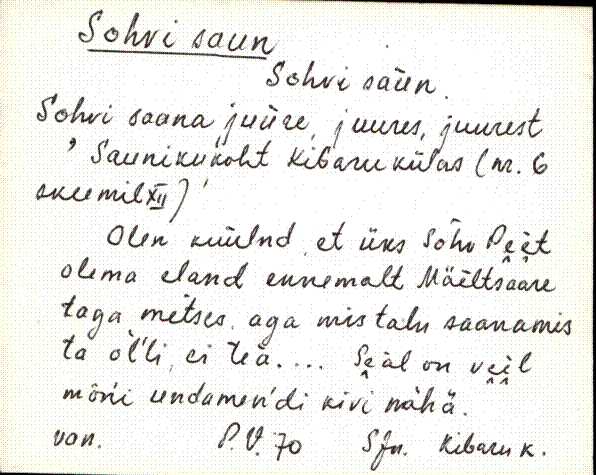 Sohvi saun
Sohvi saun.
Sohvi saana juure, juures, juurest
' Sauniku koht Kibaru külas (nr. 6
skeemil XII) '
Olen kuulnd, et üks Sohv Peet
olema eland ennemalt Mäeltsaare
taga metses, aga mis talu saanamis
ta ol'li, ei tea.... Seal on veel
mõni undamen'di kivi nähä.
van. P.V. 70 Sfn. Kibaru k.